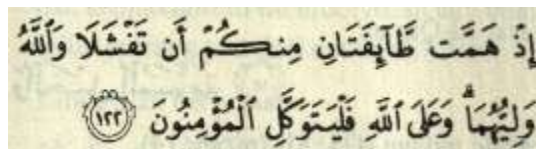 إِذْ هَمَّت طَّآئِفَتَانِ مِنكُمْ أَن تَفْشَلَا وَٱللَّهُ
وَلِيُّهُمَاۗ وَعَلَى ٱللَّهِ فَلْيَتَوَكَّلِ ٱلْمُؤْمِنُونَ ١٢٢